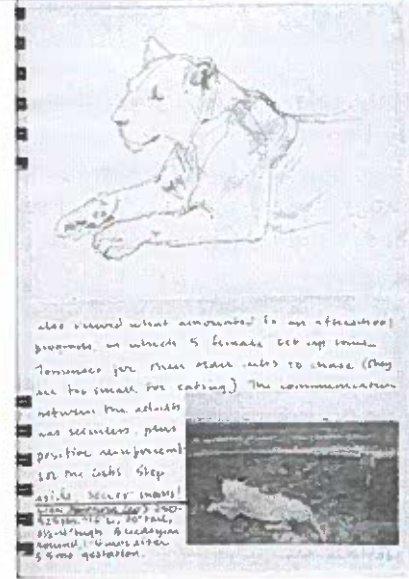 also viewed what amounted to an afterschool
program, in which 5 female set up some
Tommies for their older cubs to chase (they
are too small for eating.) The communication
between the adults
was seamless, plus
positive reinforcement
for the cubs. Step
aside, soccer moms!
high
5 mo gestation.